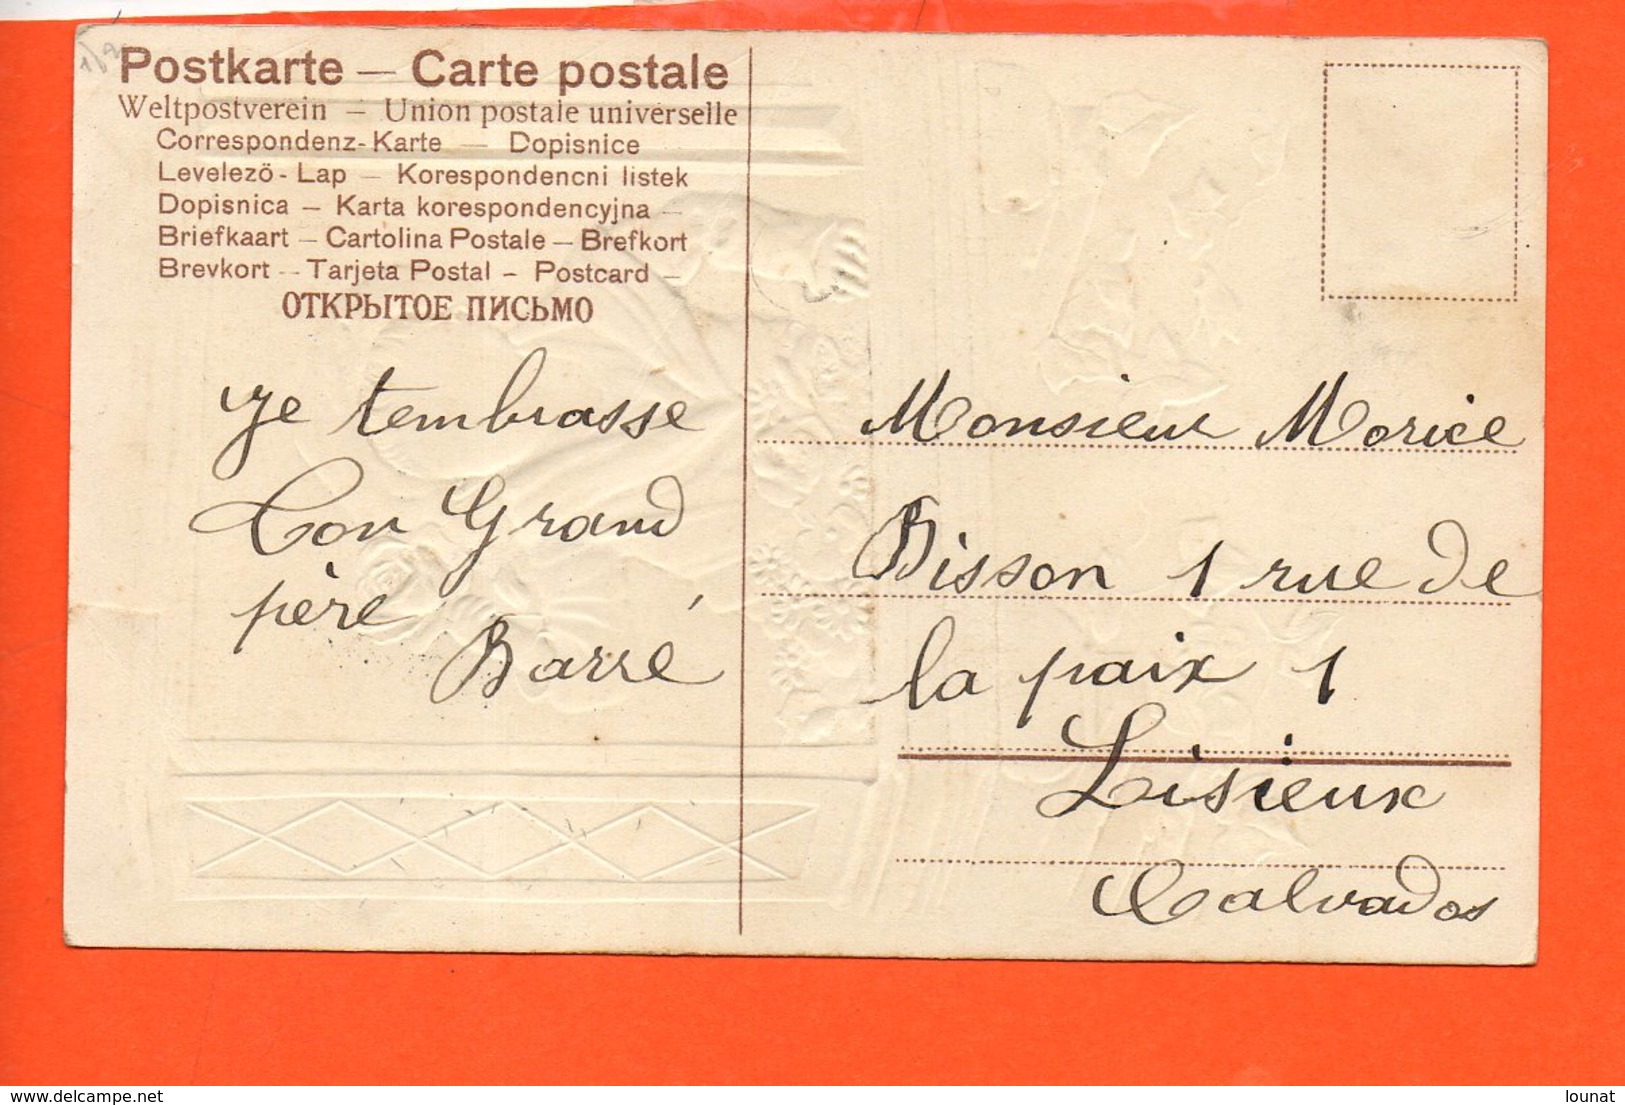 Postkarte — Carte postale
Weltpostverein — Union postale universelle
Correspondenz-Karte — Dopisnice
Levelezö-Lap — Korespondencni listek
Dopisnica — Karta korespondencyjna —
Briefkaart — Cartolina Postale — Brefkort
Brevkort — Tarjeta Postal — Postcard —
ОТКРЫТОЕ ПИСЬМО
Je tembrasse
Ton Grand
père
Barré
Monsieur Morice
Bisson 1 rue de
la paix 1
Lisieux
Calvados
delcampe.net
lounat